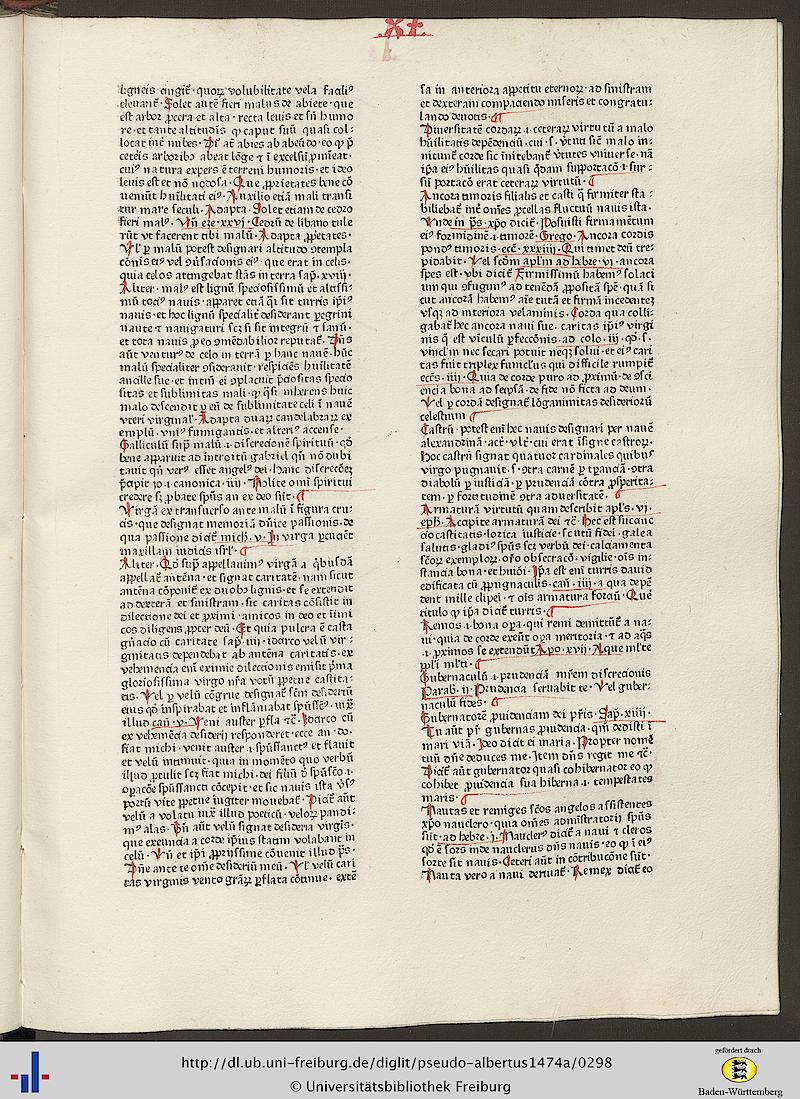 .XI.
ligneis cingit̃· quoꝝ volubilitate vela facili⁹
eleuant̃· Solet autẽ fieri malus de abiete· que
est arbor ꝓcera et alta· recta leuis et sñ humo
re· et tante altitudĩs ꝙ caput suũ quasi col⸗
locat int̃ nubes· abies ab abeũdo· eo ꝙ p̃
ceteris arborib⁹ abeat lõge ⁊ ĩ excelsũ ꝓmĩeat·
cui⁹ natura expers ẽ terreni humoris· et ideo
leuis est et nõ nodosa· Que ꝓprietates bene cõ
ueniũt hũilitati ei⁹· Auxilio etiã mali transi
tur mare seculi· Adapta· Solet etiam de cedro
fieri mal⁹· Vñ eze· xxvij· Cedrũ de libano tule
rũt vt facerent tibi malũ· Adapta ꝓp̃etates·
Vel ꝑ malũ potest designari altitudo ꝯtempla
cõnis ei⁹ vel ꝯũsacionis ei⁹ que erat in celis·
quia celos attingebat stãs in terra sap̃· xviij·
Aliter· mal⁹ est lignũ speciosissimũ et altissi⸗
mũ toci⁹ nauis· apparet etiã q̃si sit turris ip̃i⁹
nauis· et hoc lignũ specialit̃ desiderant ꝑegrini
naute ⁊ nauigaturi scꝫ si sit integrũ ⁊ sanũ·
et tota nauis ꝓ eo ꝯmẽdabilior reputat̃· Dñs
aũt ventur⁹ de celo in terrã ꝑ hanc nauẽ· hũc
malũ specialiter ꝯsiderauit· respiciẽs hũilitatẽ
ancille sue· et intm̃ ei ꝯplacuit p̃ciositas specio
sitas et sublimitas mali· ꝙ q̃si inherens huic
malo descendit ꝑ eũ de sublimitate celi ĩ nauẽ
vteri virginal̃· Adapta duaꝝ candelabraꝝ ex
emplũ· vni⁹ fumigantis· et alteri⁹ accense·
Galliculũ sup̃ malũ .i· discrecionẽ spirituũ· qđ
bene apparuit ad introitũ gabriel qñ nõ dubi
tauit qñ ver⁹ esset angel⁹ dei· hanc discrecõeꝫ
p̃cipit jo· i· canonica· iiij· Nolite omi spiritui
credere sꝫ ꝓbate spũs an ex deo sũt·
Virgã ex transuerso ante malũ ĩ figura cru⸗
cis· que designat memoriã dñice passionis· de
qua passione dicit̃ mich̃· v· In virga ꝑcuciẽt
maxillam iudicis isrl̃·
Aliter· Qđ sup̃ appellauim⁹ virgã a q̃busdã
appellat̃ antẽna· et signat caritatẽ· nam sicut
antẽna cõponit̃ ex duob⁹ lignis· et se extendit
ad dexterã et sinistram· sic caritas cõsistit in
dilectione dei et ꝓximi· amicos in deo et ĩimi
cos diligens ꝓpter deũ· Et quia pulcra ẽ casta
gñacio cũ caritate sap̃· iiij· idarco velũ vir⸗
ginitatis dependebat ab antẽna caritatis· ex
vehemencia enĩ eximie dileccionis emisit p̃ma
gloriosissima virgo nr̃a votũ ꝑpetue castita⸗
tis· Vel ꝑ velũ cõgrue designat̃ sc̃m desideriũ
eius qđ inspirabat et inflãmabat spũssc̃⁹· iux̃
illud cañ· v· Veni auster ꝑfla ⁊c̃· Idarco cũ
ex vehemẽcia desiderij responderet· ecce an· do·
fiat michi· venit auster .i· spũssanct⁹ et flauit
et velũ intimuit· quia in momẽto quo verbũ
illud ꝓtulit scꝫ fiat michi· dei filiũ đ spũsc̃o .i·
oꝑacõe spũssancti cõcepit· et sic nauis ista vs⁹
portũ vite ꝑpetue iugiter mouebat̃· Dicit̃ aũt
velũ a volatu iux̃ illud poeticũ· veloꝝ pandi⸗
m⁹ alas· Pñ aũt velũ signat desideria virgis·
que exeuncia a corde ip̃ius statim volabant in
celũ· Vñ et ip̃i ꝓpriissime cõuenit illud p̃s·
Dñe ante te om̃e desideriũ meũ· Vel velũ cari
tas virginis vento grãꝝ ꝑflata cõtinue· extẽ
sa in anteriora appetitu eternoꝝ· ad sinistram
et dexteram compaciendo miseris et congratu⸗
lando deuotis·
Diuersitatẽ cordaꝝ .i· ceteraꝝ virtutũ a malo
hũilitatis depẽdenciũ· cui .s· v̾tuti sic̃ malo in⸗
nitunt̃ corde sic ĩnitebant̃ v̾tutes vniuerse· nã
ip̃a ei⁹ hũilitas quasi q̃dam supportacõ· i sur⸗
sũ portacõ erat ceteraꝝ virtutũ·
Ancora timoris filialis et casti q̃ firmiter sta⸗
biliebat̃ int̃ om̃es ꝓcellas fluctuũ nauis ista·
Vnde in p̃s· xp̃o dicit̃· Posuisti firmamẽtum
ei⁹ formidinẽ .i· timorẽ· Grego· Ancora cordis
pond⁹ timoris· ecc̃· xxxiiij· Qui timet deũ tre⸗
pidabit· Vel sc̃đm apl̃m ad hebre· vi· ancora
spes est· vbi dicit̃ Firmissimũ habem⁹ solaci
um qui ꝯfugim⁹ ad tenẽdã ꝓpositã spẽ· quã si
cut ancorã habem⁹ aĩe tutã et firmã incedenteꝫ
vsqꝫ ad interiora velaminis· Corda qua colli⸗
gabat̃ hec ancora naui sue· caritas ip̃i⁹ virgi
nis q̃ est vĩculũ ꝑfeccõnis· ad colo· iij· qđ .s·
vinclm̃ nec secari potuit neqꝫ solui· et ei⁹ cari
tas fuit triplex funicl̃us qui difficile rumpit̃
ecc̃s· iiij· Quia de corde puro ad ꝓximũ· de ꝯsci
encia bona ad seip̃sã· de fide nõ ficta ad deum·
Vel ꝑ cordã designat̃ lõganimitas desiderioꝝ
celestium
Castrũ· potest em̃ hec nauis designari per nauẽ
alexandrinã· act̃· vlt̃· cui erat ĩsigne castroꝝ·
Hoc castrũ signat quatuor cardinales quibus
virgo pugnauit .s· ꝯtra carnẽ ꝑ tꝑanciã· ꝯtra
diabolũ ꝑ iusticiã· ꝑ prudenciã cõtra ꝓsperita⸗
tem· ꝑ fortitudinẽ ꝯtra aduersitatẽ·
Armaturã virtutũ quam describit apl̃s· vj·
eph̃· Accipite armaturã dei ⁊c̃· Hec est succinc
cio castitatis· lorica iusticie· scutũ fidei· galea
salutis· gladi⁹ spũs scꝫ verbũ dei· calciamenta
sc̃oꝝ exemploꝝ· oĩo obsecracõ· vigilie· oĩs in⸗
stancia bona· et huiõi· Ip̃a est enĩ turris dauid
edificata cũ ꝓpugnaculis· cañ· iiij· a qua depẽ
dent mille clipei· ⁊ oĩs armatura forciũ· Que
titulo q̃ ip̃a dicit̃ turris·
Remos .i· bona oꝑa· qui remi demittũt̃ a na⸗
ui· quia de corde exeũt oꝑa meritoria· ⁊ ad aq̃s
.i· ꝓximos se extendũt Apo· xvij· Aque ml̃te
ppl̃i ml̃ti·
Gubernaculũ .i· prudenciã mr̃em discrecionis
Parab̃· ij· Prudencia seruabit te· Vel guber⸗
naculũ fides·
Gubernatorẽ ꝓuidenciam dei pr̃is· Sap̃· xiiij·
Tu aũt pr̃ gubernas ꝓuidencia· qm̃ dedisti ĩ
mari viã· Ideo dicit ei maria· Propter nomẽ
tuũ dñe deduces me· Item dñs regit me ⁊c̃·
Dicit̃ aũt gubernator quasi cohibernator eo ꝙ
cohibet ꝓuidencia sua hiberna .i· tempestates
maris·
Nautas et remiges sc̃os angelos assistentes
xp̃o nauclero· quia om̃es admĩstratorij spũs
sũt· ad hebre· j· Naucler⁹ dicit̃ a naui ⁊ cleros
qđ ẽ sors inde nauclerus dñs nauis· eo ꝙ ĩ ei⁹
sorte sit nauis· Ceteri aũt in cõtribucõne sũt·
Nauta vero a naui deriuat̃· Remex dicit̃ eo
http://dl.ub.uni-freiburg.de/diglit/pseudo-albertus1474a/0298
© Universitätsbibliothek Freiburg
gefördert durch
Baden-Württemberg